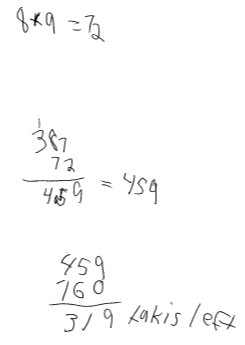 8*9 = 72
1
387
72
459 = 459
459
760
319 takis left